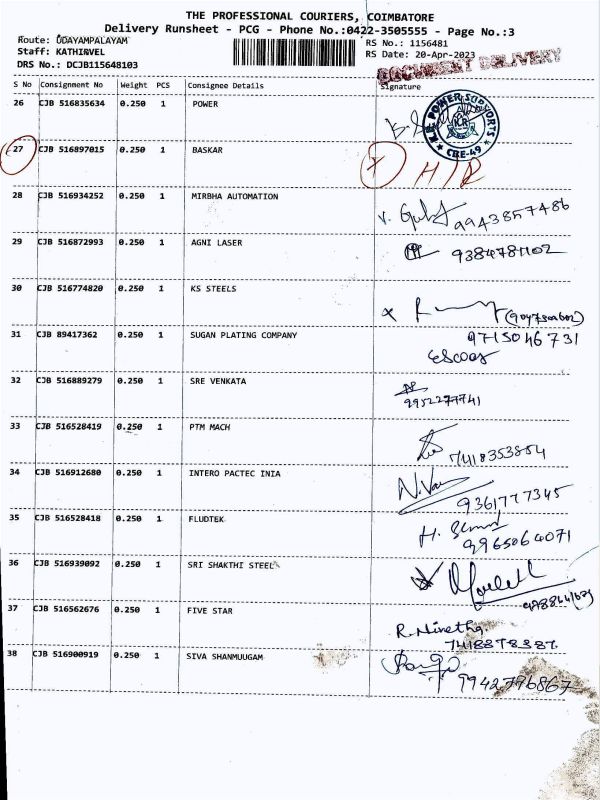 THE PROFESSIONAL COURIERS, COIMBATORE
Delivery Runsheet - PCG - Phone No.:0422-3505555 - Page No.:3
Route: UDAYAMPALAYAM
Staff: KATHIRVEL
DRS No.: DCJB115648103
RS No.: 1156481
RS Date: 20-Apr-2023
DOCUMENT DELIVERY
S No Consignment No Weight PCS Consignee Details Signature
26 CJB 516835634 0.250 1 POWER
K.R. POWER SUPPORTS
K.R
CBE-49
27 CJB 516897015 0.250 1 BASKAR
28 CJB 516934252 0.250 1 MIRBHA AUTOMATION
9943857486
29 CJB 516872993 0.250 1 AGNI LASER 9384781102
30 CJB 516774820 0.250 1 KS STEELS
31 CJB 89417362 0.250 1 SUGAN PLATING COMPANY 9715046731
32 CJB 516889279 0.250 1 SRE VENKATA
9952277741
33 CJB 516528419 0.250 1 PTM MACH
7418353854
34 CJB 516912680 0.250 1 INTERO PACTEC INIA
9361777345
35 CJB 516528418 0.250 1 FLUDTEK
9965064071
36 CJB 516939092 0.250 1 SRI SHAKTHI STEEL
37 CJB 516562676 0.250 1 FIVE STAR
R. Ninetha
7418878387
38 CJB 516900919 0.250 1 SIVA SHANMUUGAM
9942796867